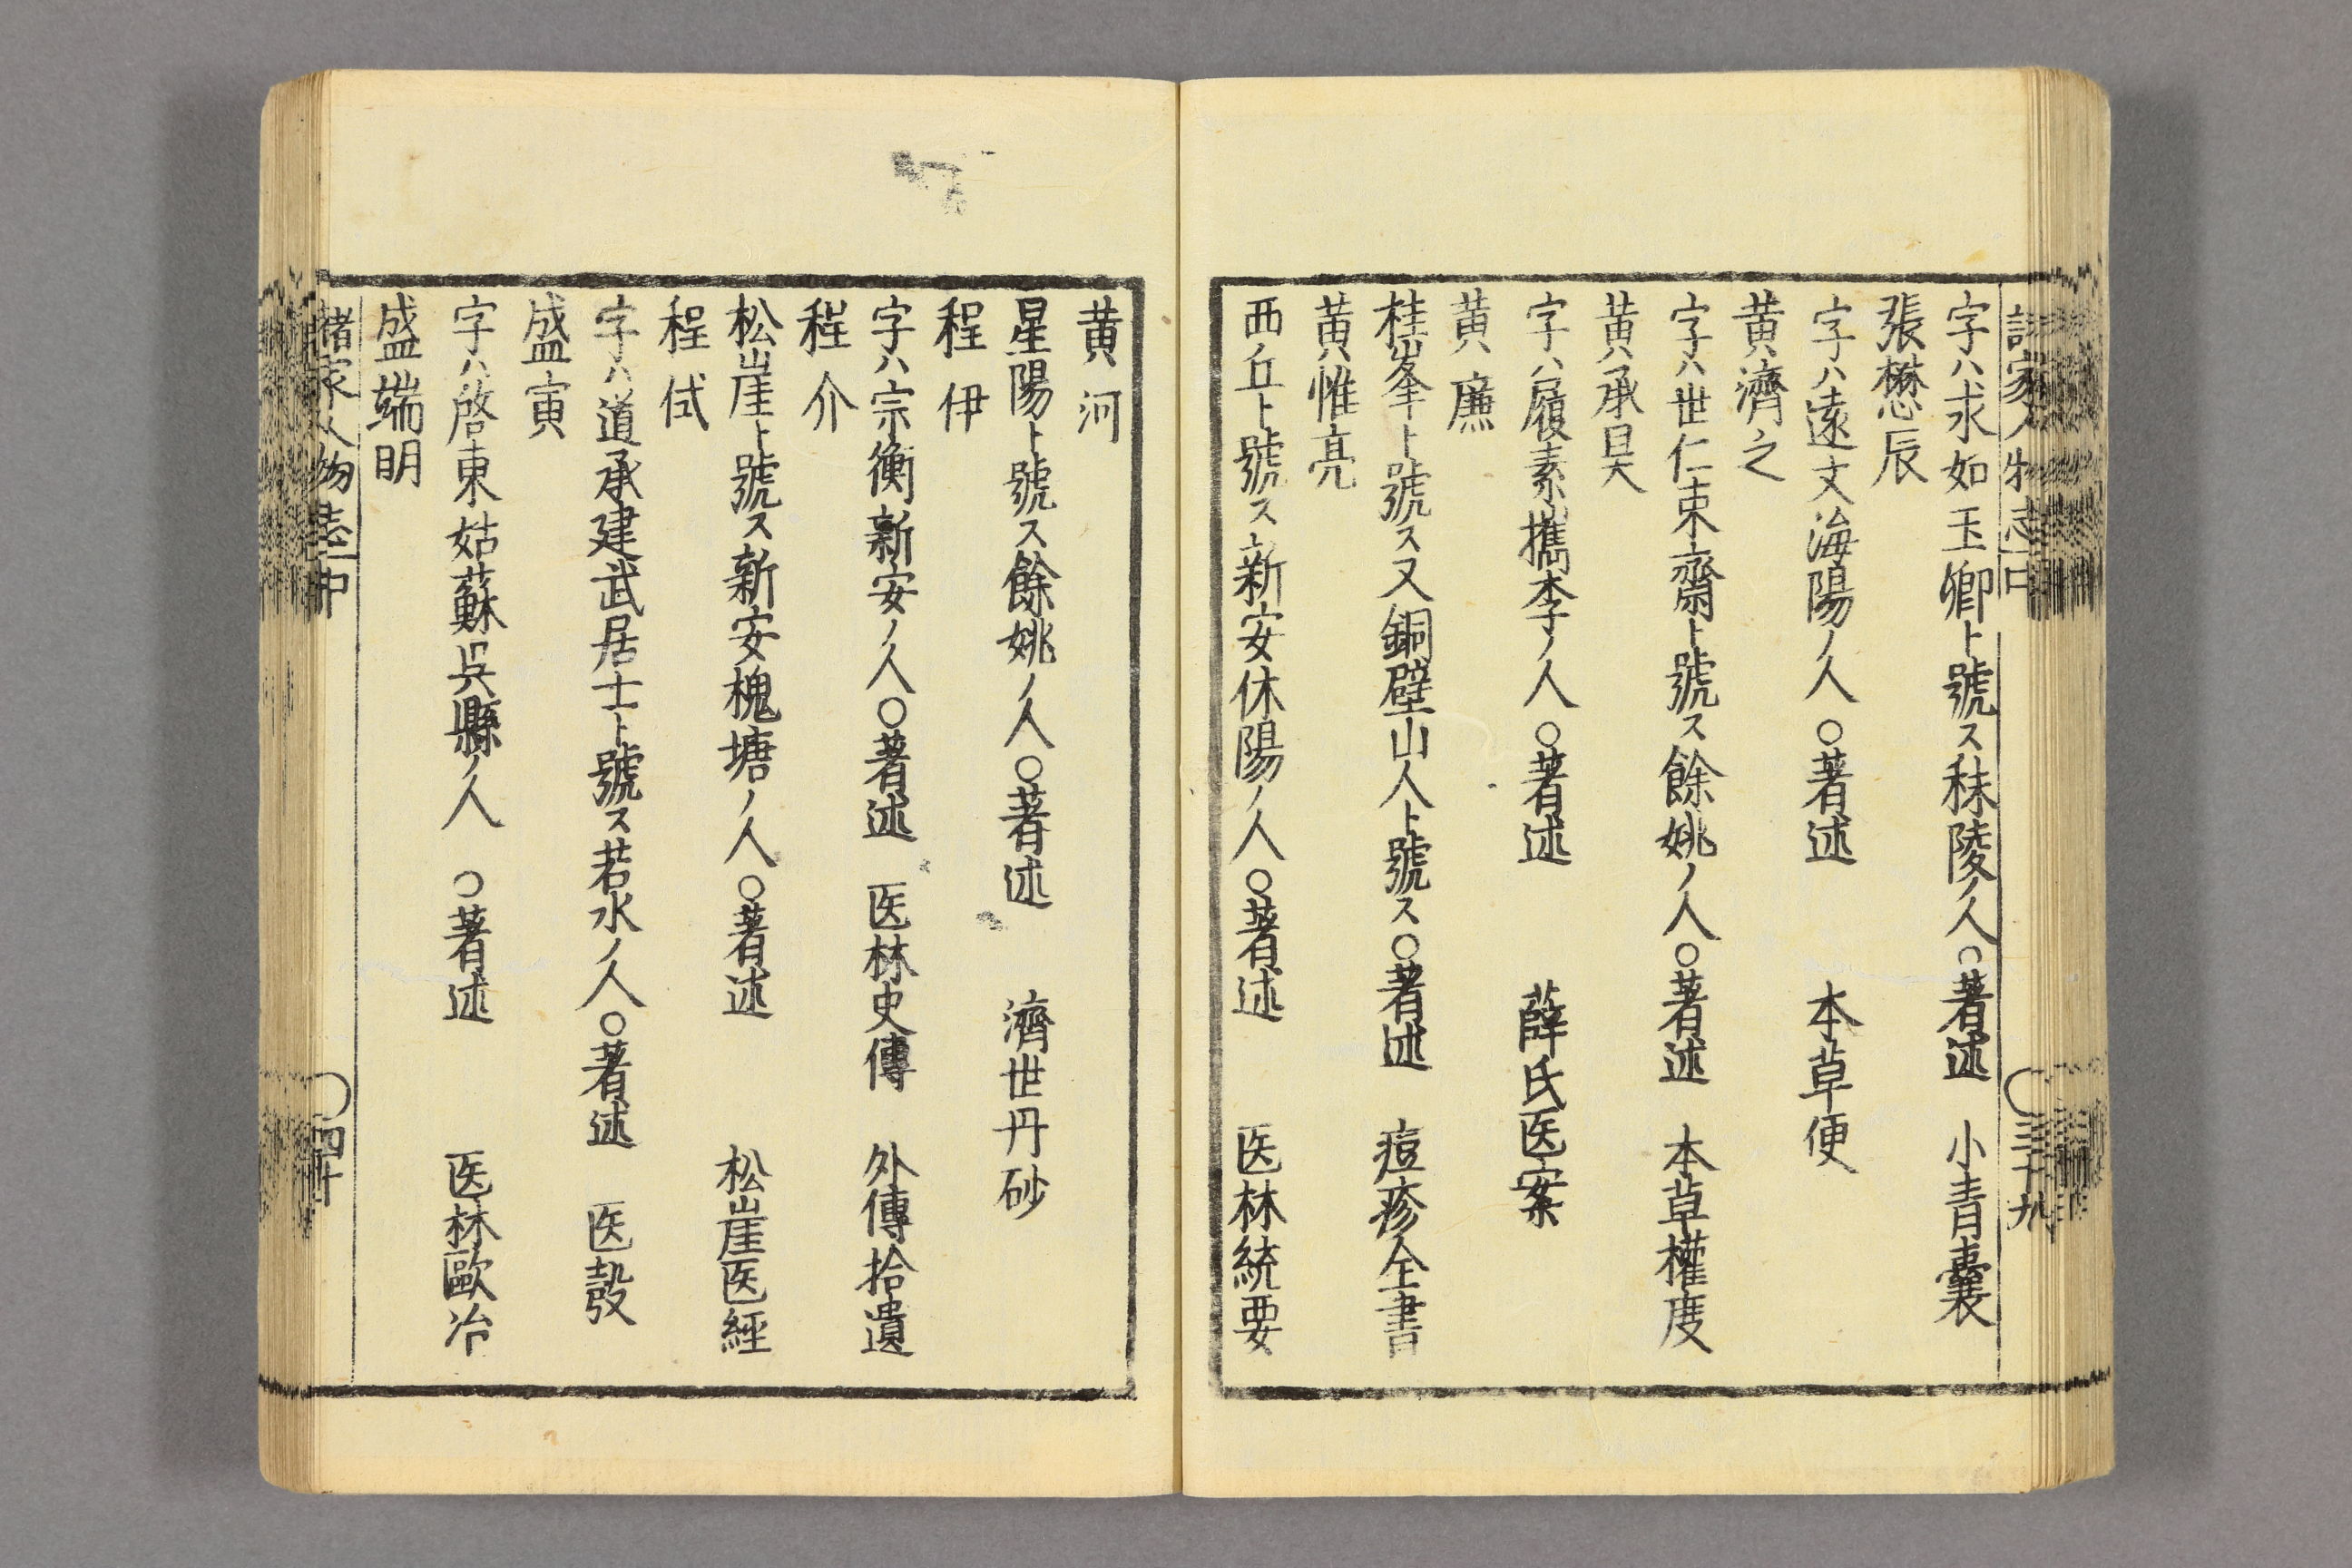 諸家人物志中 〇三十九
字ハ求如玉卿ト號ス秣陵ノ人〇著述 小青囊
張懋辰
字ハ遠文海陽ノ人〇著述 本草便
黄濟之
字ハ世仁束齋ト號ス餘姚ノ人〇著述 本草權度
黄承昊
字ハ履素檇李ノ人〇著述 薛氏医案
黄廉
桂峯ト號ス又銅壁山人ト號ス〇著述 痘疹全書
黄惟亮
西丘ト號ス新安休陽ノ人〇著述 医林統要
黄河
星陽ト號ス餘姚ノ人〇著述 濟世丹砂
程伊
字ハ宗衡新安ノ人〇著述 医林史傳 外傳拾遺
程介
松崖ト號ス新安槐塘ノ人〇著述 松崖医經
程㐲
字ハ道承建武居士ト號ス若水ノ人〇著述 医彀
盛寅
字ハ啓東姑蘇呉縣ノ人〇著述 医林歐冶
盛端明
諸家人物志中 〇四十